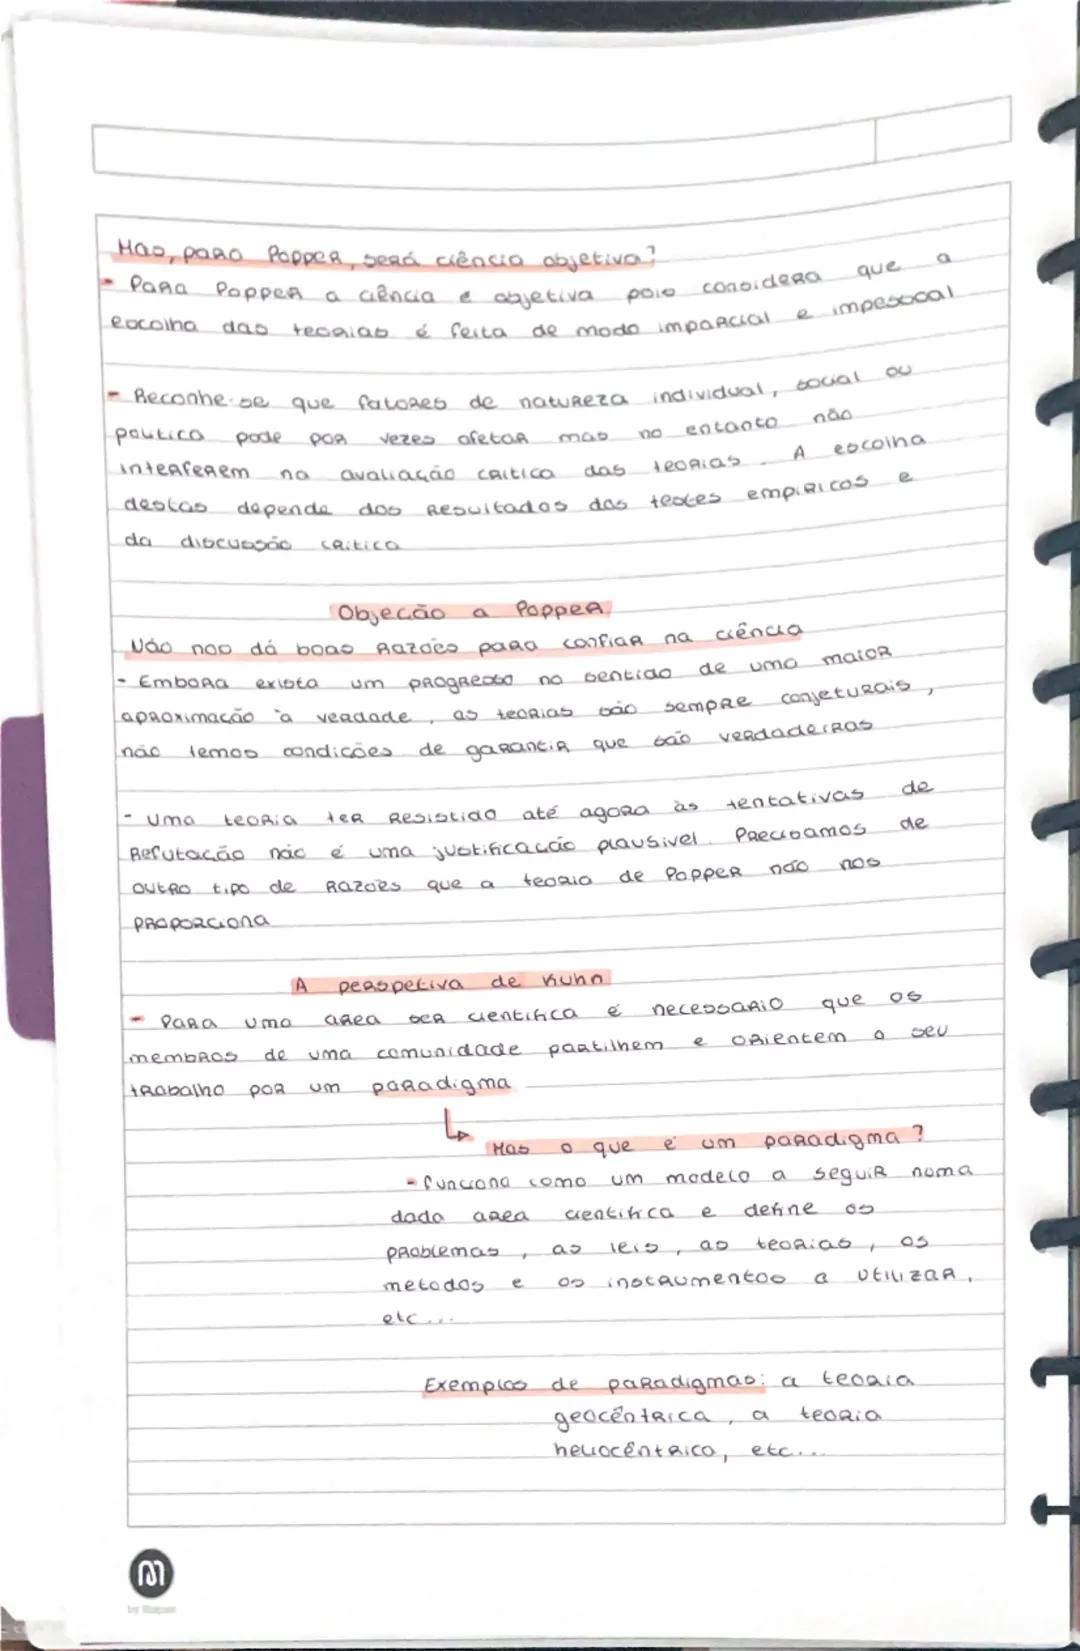 Mas, para Popper, será ciência objetiva?
- Para Popper a ciência e objetiva pois considera que a
escolha das teorias é feita de modo imparcial e impessoal
- Reconhe-se que fatores de natureza individual, social ou
politica pode por vezes afetar mas no entanto não
interferem na avaliação critica das teorias. A escolha
destas depende dos resultados dos testes empiricos e
da discussão critica
Objeção a Popper
Não nos dá boas razões para confiar na ciência
- Embora exista um progresso no sentido de uma maior
aproximação à verdade, as teorias são sempre conjeturais,
não temos condições de garantir que são verdadeiras
- Uma teoria ter resistido até agora às tentativas de
refutação não é uma justificação plausivel. Precisamos de
outro tipo de razões que a teoria de Popper não nos
proporciona
A perspetiva de Kuhn
- Para uma area ser cientifica é necessario que os
membros de uma comunidade partilhem e orientem o seu
trabalho por um paradigma
Mas o que é um paradigma?
- funciona como um modelo a seguir numa
dada area cientifica e define os
problemas, as leis, as teorias, os
metodos e os instrumentos a utilizar,
etc...
Exemplos de paradigmas: a teoria
geocêntrica, a teoria
heliocêntrica, etc...